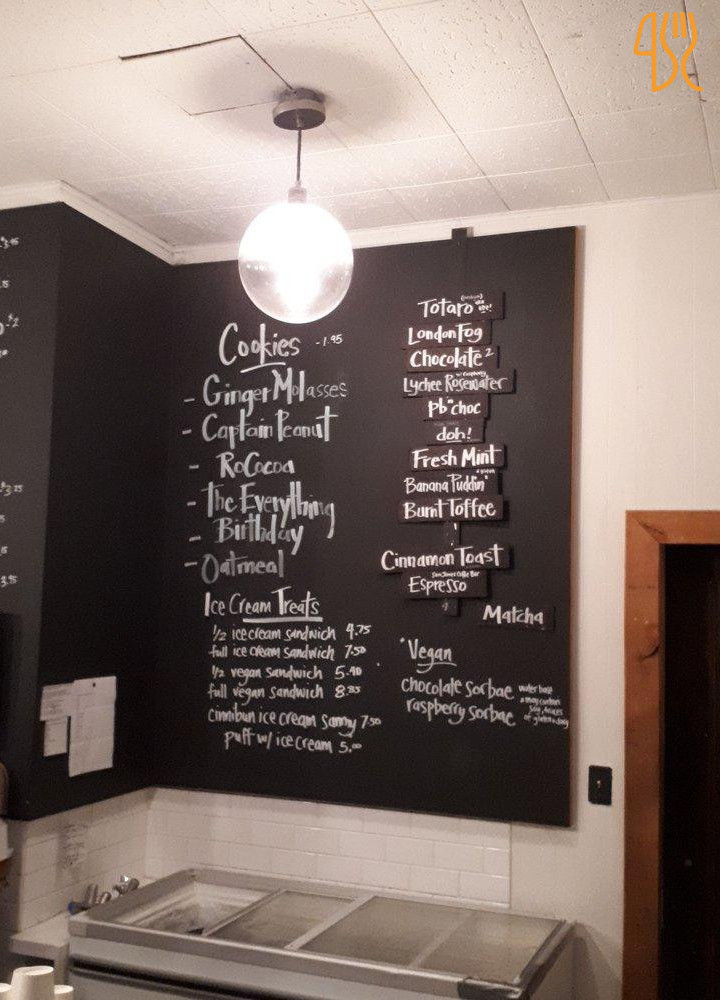 Cookies -1.95
- Ginger Molasses
- Captain Peanut
- RoCocoa
- The Everything
- Birthday
- Oatmeal
Ice Cream Treats
1/2 ice cream sandwich 4.75
full ice cream sandwich 7.50
1/2 vegan sandwich 5.40
full vegan sandwich
cinnibun ice cream sammy 7.50
puff w/ ice cream 5.00
Totaro
London Fog
Chocolate 2
Lychee Rosewater
Pb"choc
doh!
Fresh Mint
Banana Puddin'
Burnt Toffee
Cinnamon Toast
Espresso
Matcha
"Vegan
chocolate sorbae water base
raspberry sorbae